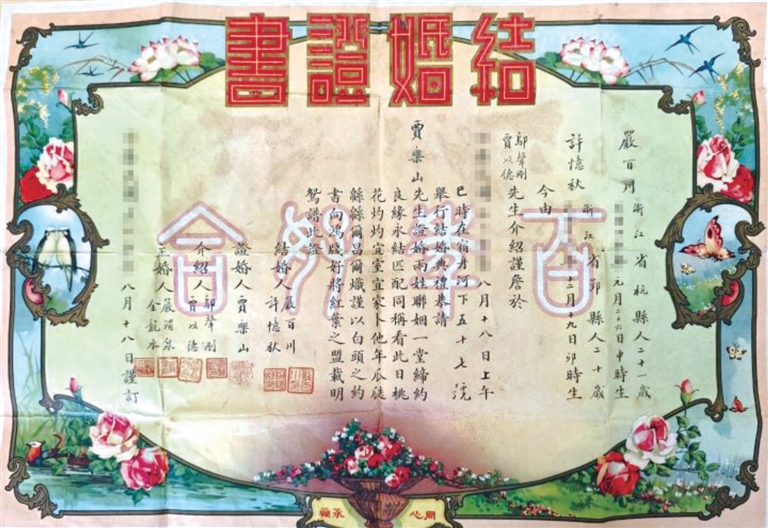 結婚證書
百年好合
嚴百川 浙江省杭縣人二十一歲
元月二十六日申時生
許憶秋 浙江省鄞縣人二十歲
十二月十九日卯時生
今由
鄔聲剛
賈以德
先生介紹謹詹於
八月十八日上午
巳時在宿舟河下五十七號
舉行結婚典禮恭請
賈樂山先生證婚兩姓聯姻一堂締約
良緣永結匹配同稱看此日桃
花灼灼宜室宜家卜他年瓜瓞
緜緜爾昌爾熾謹以白頭之約
書向鴻牋好將紅葉之盟載明
鴛譜此證
結婚人 嚴百川
許憶秋
證婚人 賈樂山
介紹人 鄔聲剛
賈以德
主婚人 嚴泉
金龍水
八月十八日謹訂
同心